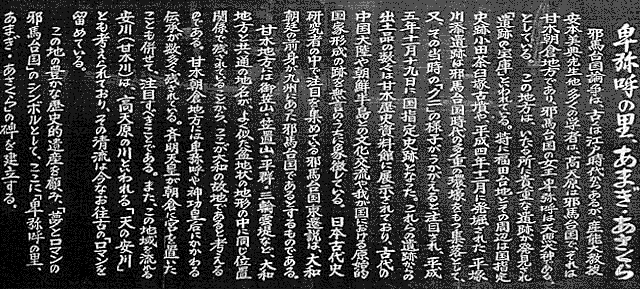 卑弥呼の里、あまぎ・あさくら
邪馬台国論争は、古くは江戸時代からあるが、産能大教授
安本美典先生他多くの学者は「高天原は邪馬台国で、それは
甘木朝倉地方であり、邪馬台国の女王・卑弥呼は天照大神である」
としている。この地方は、いたる所に貴重な遺跡が発見され
「遺跡の宝庫」といわれている。特に福田台地とその周辺は国指定
史跡小田茶臼塚古墳や、平成四年十二月に発掘された平塚
川添遺跡は邪馬台国時代の多重の環濠をもつ集落として、
又、その当時の「クニ」の様子がうかがえると注目され、平成
五年十一月十九日に国指定史跡となった。これらの遺跡から
出土品の数々は甘木歴史資料館に展示されており、古代の
中国大陸や朝鮮半島との文化交流や我が国における原始的
国家形成の跡を無言のうちに象徴している。日本古代史
研究者の中で注目を集めている邪馬台国東遷説は、大和
朝廷の前身が九州にあった邪馬台国であるとするものである。
甘木地方には御笠山の位置、山、平群、三輪、雲堤など、大和
地方と共通の地名が、よく似た盆地状の地形の中に同じ位置
関係で残されていることから、ここが大和の故地であると考える
のである。甘木朝倉地方には卑弥呼や神功皇后にかかわる
伝承が数多く残されている。斉明天皇が朝倉に宮を置いた
ことも併せて、注目すべきことである。また、この地域を流れる
安川（甘木川）は、高天原の川といわれる「天の安川」
とも考えられており、その清流は今なお往古のロマンを
留めている。
この地の豊かな歴史的遺産を顧み、夢とロマンの
邪馬台国のシンボルとして、ここに、「卑弥呼の里、
あまぎ・あさくら」の碑を建立する。